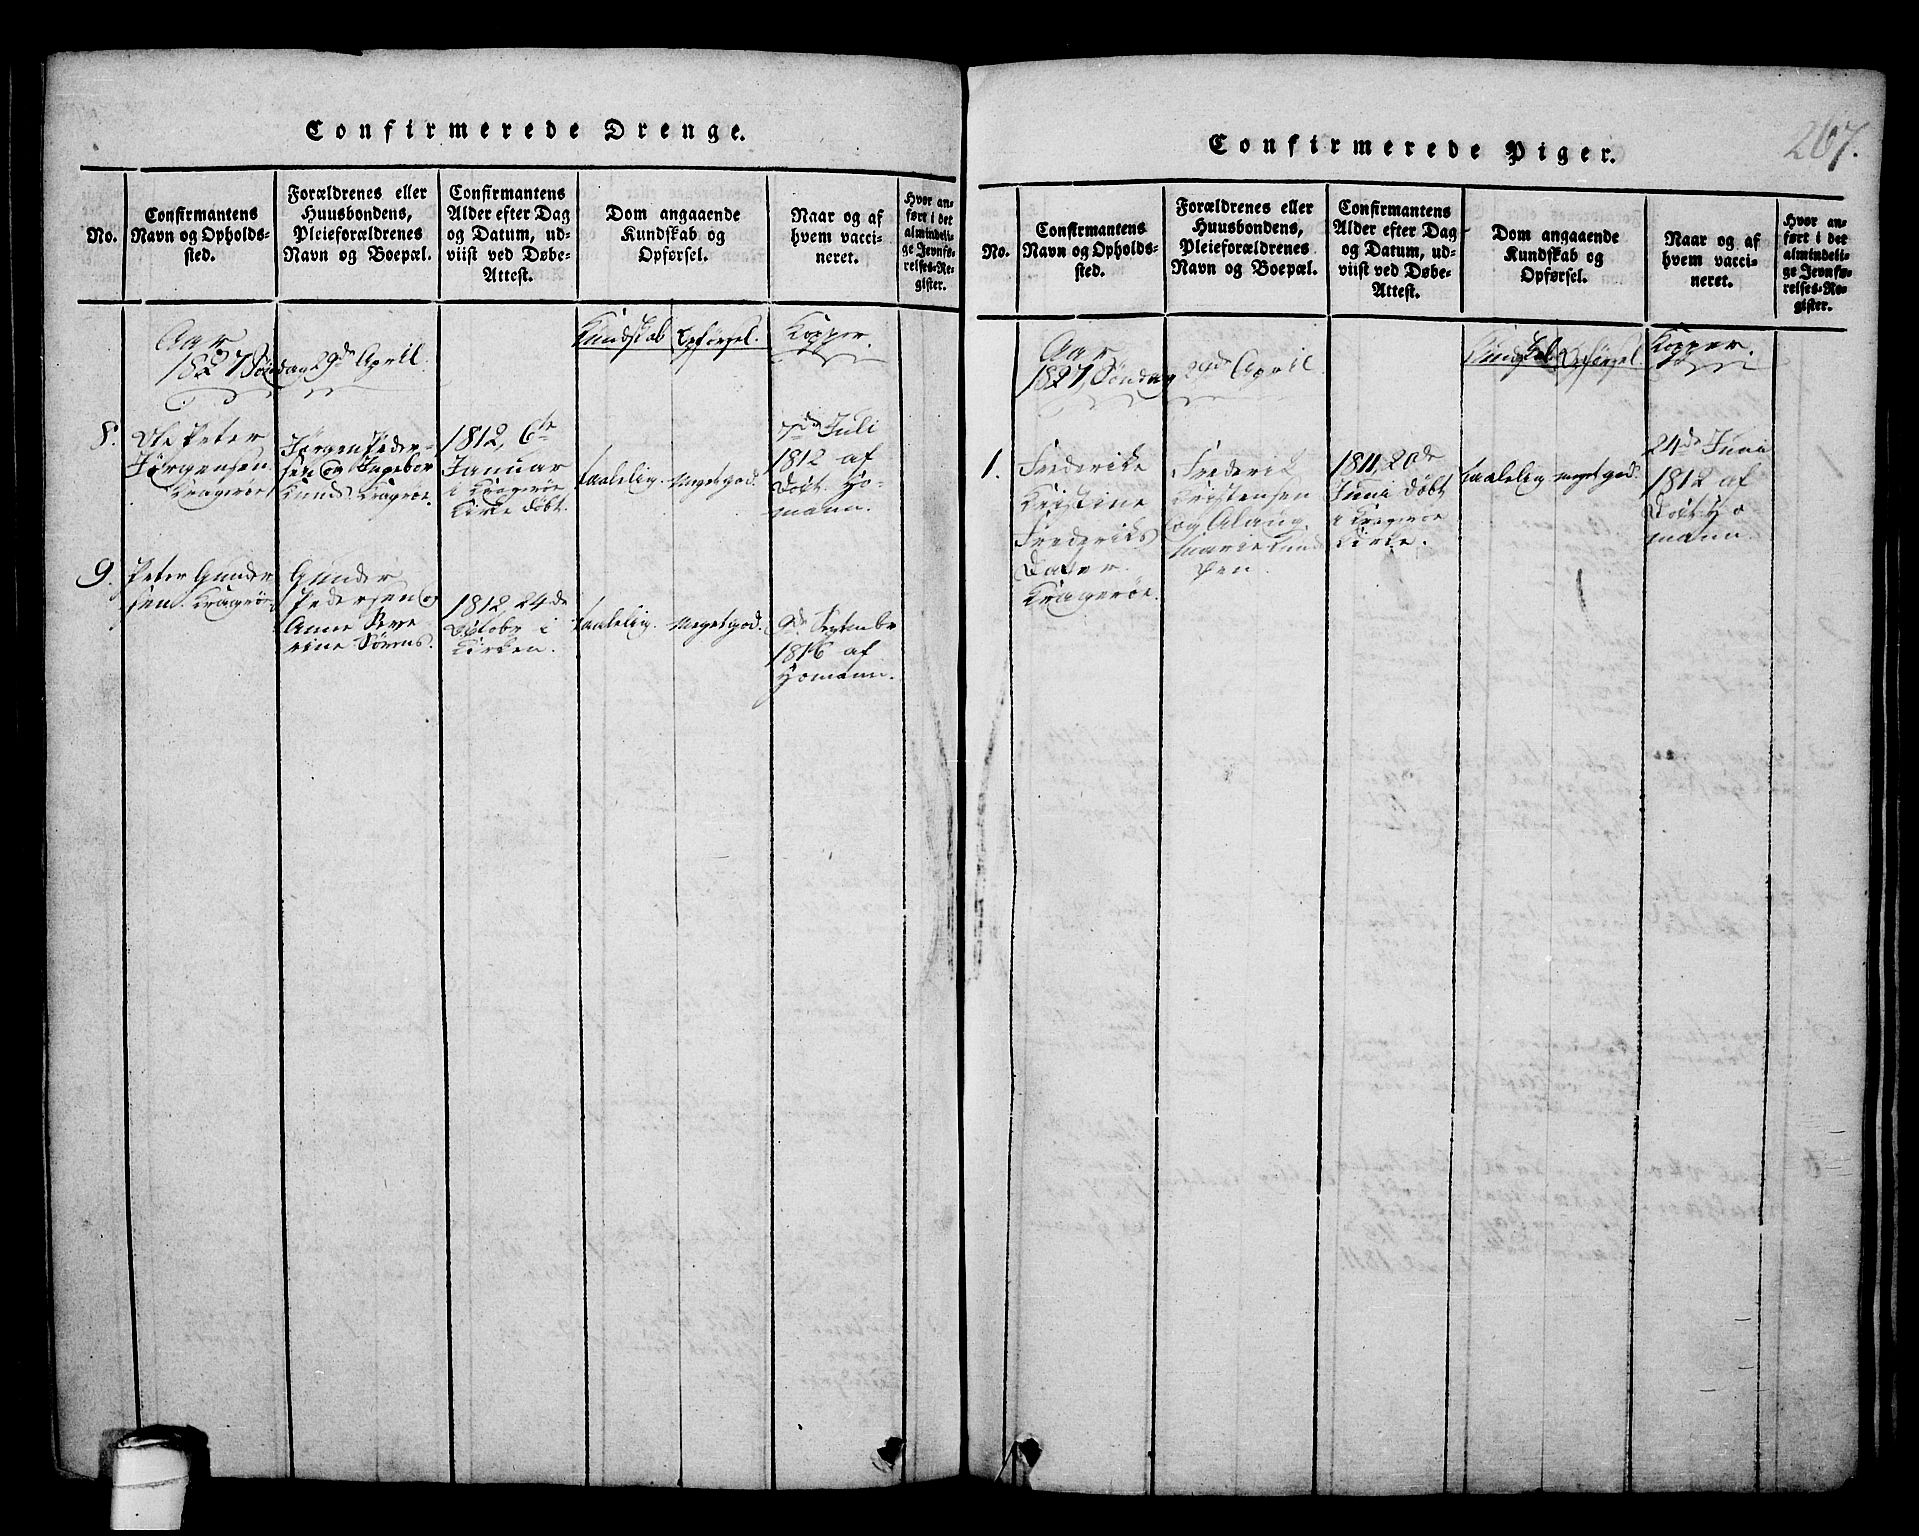 Confirmerede Drenge.
No.
Confirmantens
Navn og Opholds-
sted.
Forældrenes eller
Huusbondens,
Pleieforældrenes
Navn og Boepæl.
Confirmantens
Alder efter Dag
og Datum, ud-
viist ved Døbe-
Attest.
Dom angaaende
Kundskab og
Opførsel.
Naar og af
hvem vacci-
neret.
Hvor an-
ført i det
almindeli-
ge Jevnfø-
relses-Re-
gister.
Aar
1827 Søndag 29de April.
Kundskab Opførsel.
Kopper.
8.
Ole Peter
Jørgensen
Kragerøe
Jørgen Peder-
sen og Ingebor
Knuds Kragerøe.
1812, 6te
Januar
i Kragerøe
Kirke døbt.
taalelig.
Meget god.
7de Juli
1812 af
Doct. Ho-
mann.
9.
Peter Gunder
sen. Kragerøe
Gunder
Pedersen og
Anne Seve
rine Sørens.
1812, 24de
Octobr i
Kirken.
taalelig.
Meget god.
9de Septembr
1816 af
Homann.
Confirmerede Piger.
267.
No.
Confirmantens
Navn og Opholds-
sted.
Forældrenes eller
Huusbondens,
Pleieforældrenes
Navn og Boepæl.
Confirmantens
Alder efter Dag
og Datum, ud-
viist ved Døbe-
Attest.
Dom angaaende
Kundskab og
Opførsel.
Naar og af
hvem vacci-
neret.
Hvor an-
ført i det
almindeli-
ge Jevnfø-
relses-Re-
gister.
Aar
1827, Søndag 29de April
Kundskab Opførsel.
Kopper.
1.
Frederike
Kristine
Frederiks
Datter.
Kragerøe.
Frederik
Kristensen
og
Marie
1811, 20de
Juni døbt
i Kragerøe
Kirke.
taalelig
meget god.
24de Juni
1812 af
Doct Ho
mann.